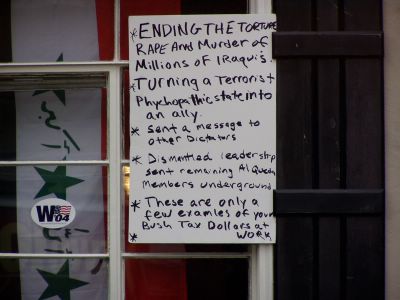 * ENDING THE TORTURE
RAPE And Murder of
Millions of IRaqui's.
* Turning a Terrorist
Phychopathic state into
an ally.
* Sent a message to
other Dictators
* Dismantled leadership
sent remaining Al Queda
Members underground
* These are only a
few examles of your
Bush Tax Dollars at
* WORK
W
04